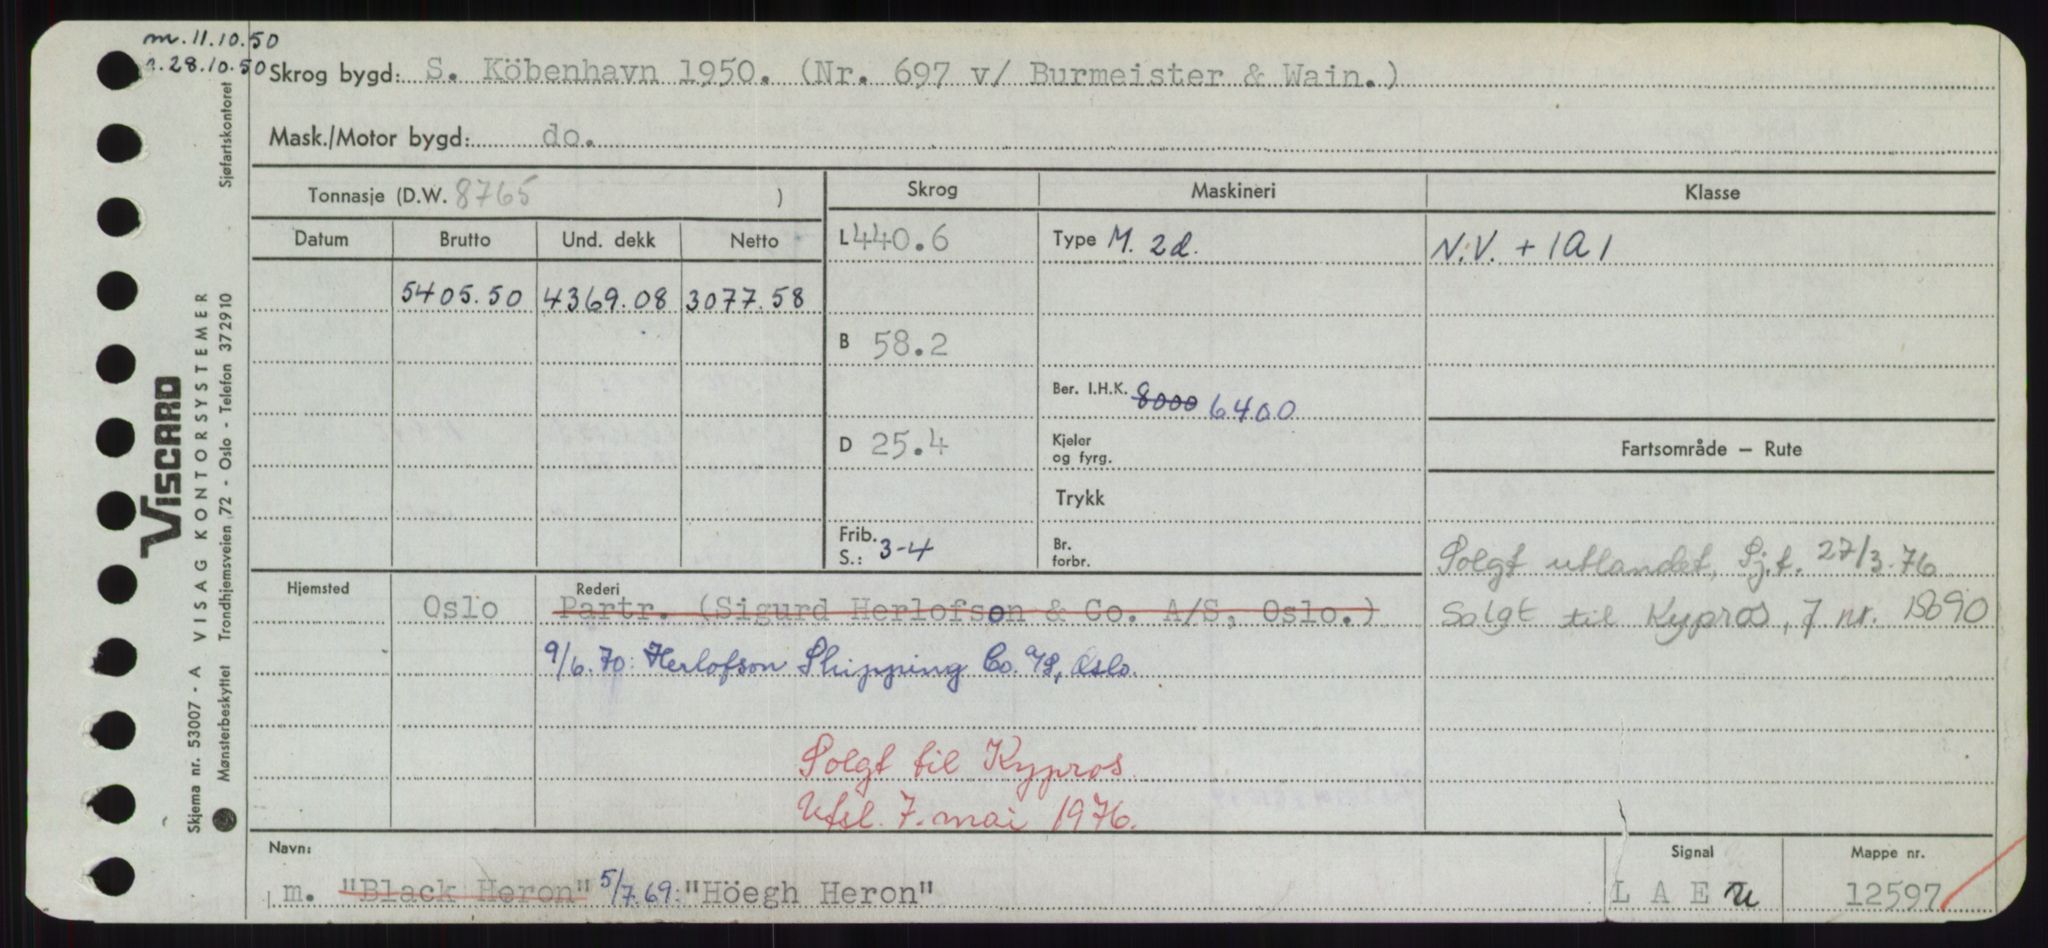 m. 11.10.50
r. 28.10.50
Skrog bygd: S. Köbenhavn 1950. (Nr. 697 v/ Burmeister & Wain.)
Mask./Motor bygd: do.
Tonnasje (D.W. 8765 )
Skrog
Maskineri
Klasse
Datum Brutto Und. dekk Netto
L 440.6
Type M. 2d.
N.V. + 1A1
5405.50 4369.08 3077.58
B 58.2
Ber. I.H.K. 8000 6400
D 25.4
Kjeler
og fyrg.
Fartsområde – Rute
Trykk
Frib.
S.: 3-4
Br.
forbr.
Solgt utlandet, Sj.t. 27/3-76
Solgt til Kypros, J nr. 1890
Hjemsted
Rederi
Oslo
Partr. (Sigurd Herlofson & Co. A/S, Oslo.)
9/6.70: Herlofson Shipping Co. A/S, Oslo.
Solgt til Kypros
Utsl. 7. mai 1976.
Navn:
m. "Black Heron" 5/7.69: "Höegh Heron"
Signal
L A E U
Mappe nr.
12597
VISCARD
Skjema nr. 53007 - A VISAG KONTORSYSTEMER
Mønsterbeskyttet Trondhjemsveien 72 - Oslo - Telefon 372910
Sjøfartskontoret